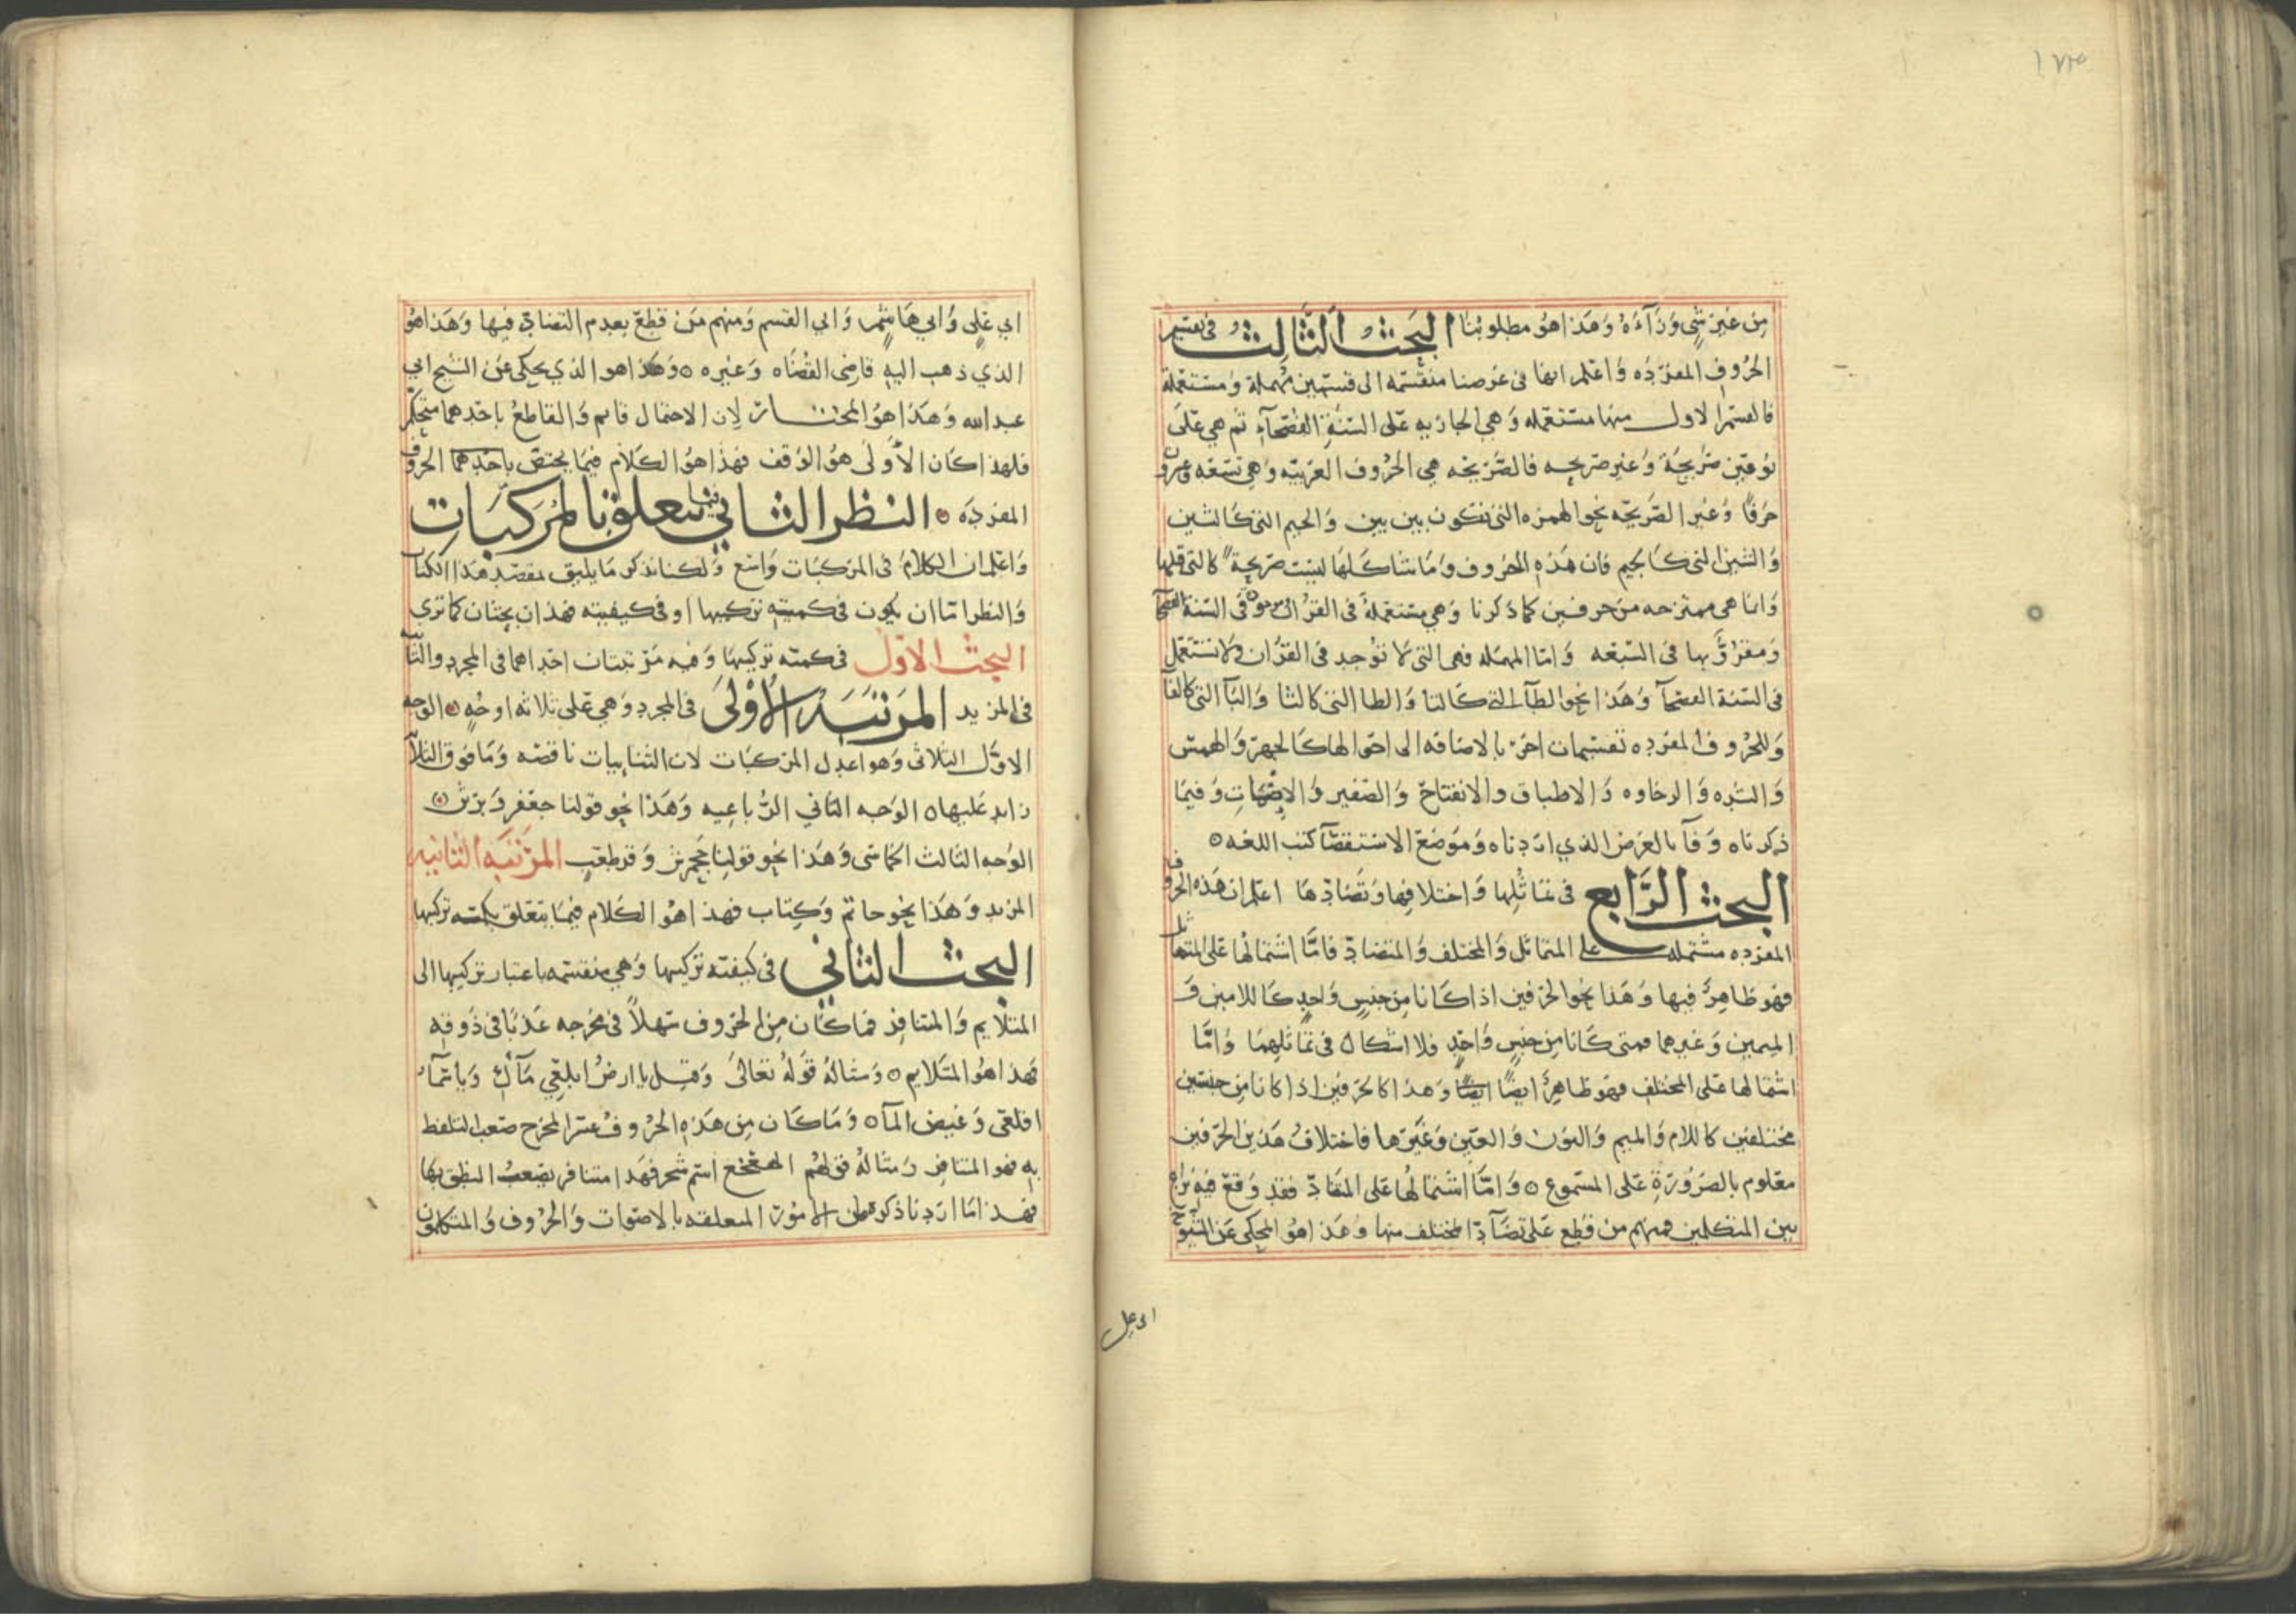 من غير شي ورآءه وهذا هو مطلوبنا البحث الثالث في تقسيم
الحروف المفرده واعلم انها في غرضنا منقسمه الى قسمين مهملة ومستعملة
فالقسم الاول منها مستعمله وهي الجاريه على السنة الفصحآء ثم هي على
نوعين صريحة وغير صريحه فالصريحه هي الحروف العربيه وهي تسعه وعشرون
حرفا وغير الصريحه نحو الهمزه التي تكون بين بين والجيم التي كالشين
والشين التي كالجيم فان هذه الحروف وما شاكلها ليست صريحة كالتي قبلها
وانما هي ممتزجه من حرفين كما ذكرنا وهي مستعملة في القرآن وفي السنة الفصحآ
ومقرؤ بها في السبعه واما المهمله فهي التي لا توجد في القرآن ولا تستعمل
في السنة الفصحآ وهذا نحو الطآء التي كالتا والظا التي كالثا والبآ التي كالفآ
وللحروف المفرده تقسيمات اخر بالاضافه الى احوالها كالجهر والهمس
والشده والرخاوه والاطباق والانفتاح والصفير وفيما
ذكرناه وفآ بالغرض الذي اردناه وموضع الاستقصآ كتب اللغه
البحث الرابع في تماثلها واختلافها وتضادها اعلم ان هذه الحروف
المفرده مشتمله على المتماثل والمختلف والمتضاد فاما اشتمالها على المتماثل
فهو ظاهر فيها وهذا نحو الحرفين اذا كانا من جنس واحد كاللامين و
الميمين وغيرهما فمتى كانا من جنس واحد فلا اشكال في تماثلهما واما
اشتمالها على المختلف فهو ظاهر ايضا ايضا وهذا كالحرفين اذا كانا من جنسين
مختلفين كاللام والميم والنون والعين وغيرها فاختلاف هذين الحرفين
معلوم بالضرورة على المسموع واما اشتمالها على المتضاد فقد وقع فيه نزاع
بين المتكلمين فمنهم من قطع على تضآد المختلف منها وهذا هو المحكى عن الشيوخ
ابي علي وابي هاشم وابي القسم ومنهم من قطع بعدم التضاد فيها وهذا هو
الذي ذهب اليه قاضى القضاه وغيره وهذا هو الذي يحكى عن الشيخ ابي
عبد الله وهذا هو المختار لان الاحتمال قائم والقاطع باحدهما متحكم
فلهذا كان الأولى هو الوقف فهذا هو الكلام فيما يختص باحدهما الحروف
المفرده النظر الثاني فيما يتعلق بالمركبات
واعلم ان الكلام في المركبات واسع ولكنا نذكر ما يليق بمقصد هذا الكتاب
والنظر اما ان يكون في كمية تركيبها او في كيفيته فهذان بحثان كما ترى
البحث الاول في كمية تركيبها وفيه مرتبتان احداهما في المجرد والثانيه
في المزيد المرتبة الاولى في المجرد وهي على ثلاثه اوجه الوجه
الاول الثلاثى وهو اعدل المركبات لان الثنايات ناقصه وما فوق الثلاثى
زايد عليها الوجه الثاني الرباعيه وهذا نحو قولنا جعفر وبرثن
الوجه الثالث الخماسى وهذا نحو قولنا جحمرش وقرطعب المرتبة الثانيه
المزيد وهذا نحو حاتم وكتاب فهذا هو الكلام فيما يتعلق بكميه تركيبها
البحث الثاني في كيفية تركيبها وهي منقسمه باعتبار تركيبها الى
المتلايم والمتنافر فما كان من الحروف سهلا في مخرجه عذبا في ذوقه
فهذا هو المتلايم ومثاله قوله تعالى وقيل يا ارض ابلعي مآءك ويا سمآء
اقلعى وغيض المآ وما كان من هذه الحروف عسر المخرج صعب التلفظ
به فهو المتنافر ومثاله قولهم الهعخع اسم شجر فهذا متنافر يصعب النطق بها
فهذا ما اردنا ذكره من الامور المتعلقه بالاصوات والحروف والمتكلمون